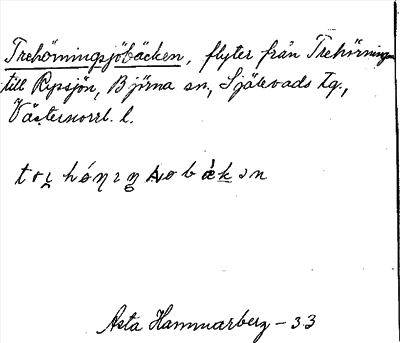 Trehörningsjöbäcken, flyter från Trehörningen
till Rypsjön, Björna sn., Själevads tg.,
Västernorrl. l.
Asta Hammarberg - 33